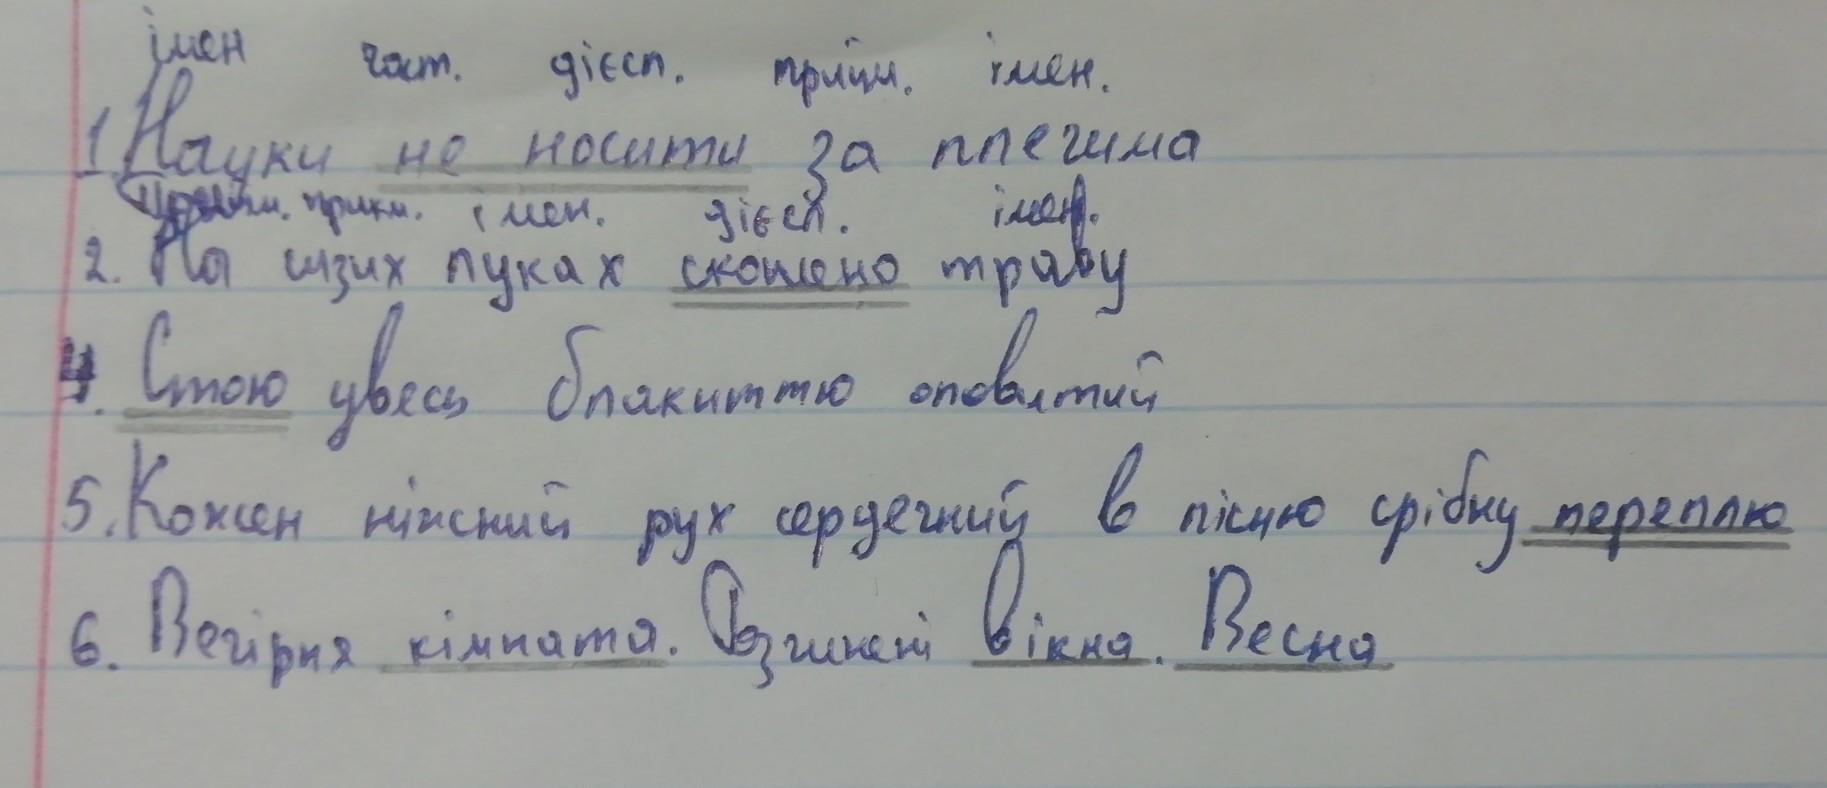 імен част. дієсл. прийм. імен.
1. Науки не носити за плечима
прийм. прикм. імен. дієсл. імен.
2. На сизих луках скошено траву
4. Стою увесь блакиттю оповитий
5. Кожен ніжний рух сердечний в пісню срібну переллю
6. Вечірня кімната. Розчинені вікна. Весна